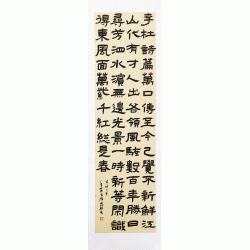 李杜詩篇萬口傳至今已覺不新鮮江
山代有才人出各領風騷數百年勝日
尋芳泗水濱無邊光景一時新等閑識
得東風面萬紫千紅總是春